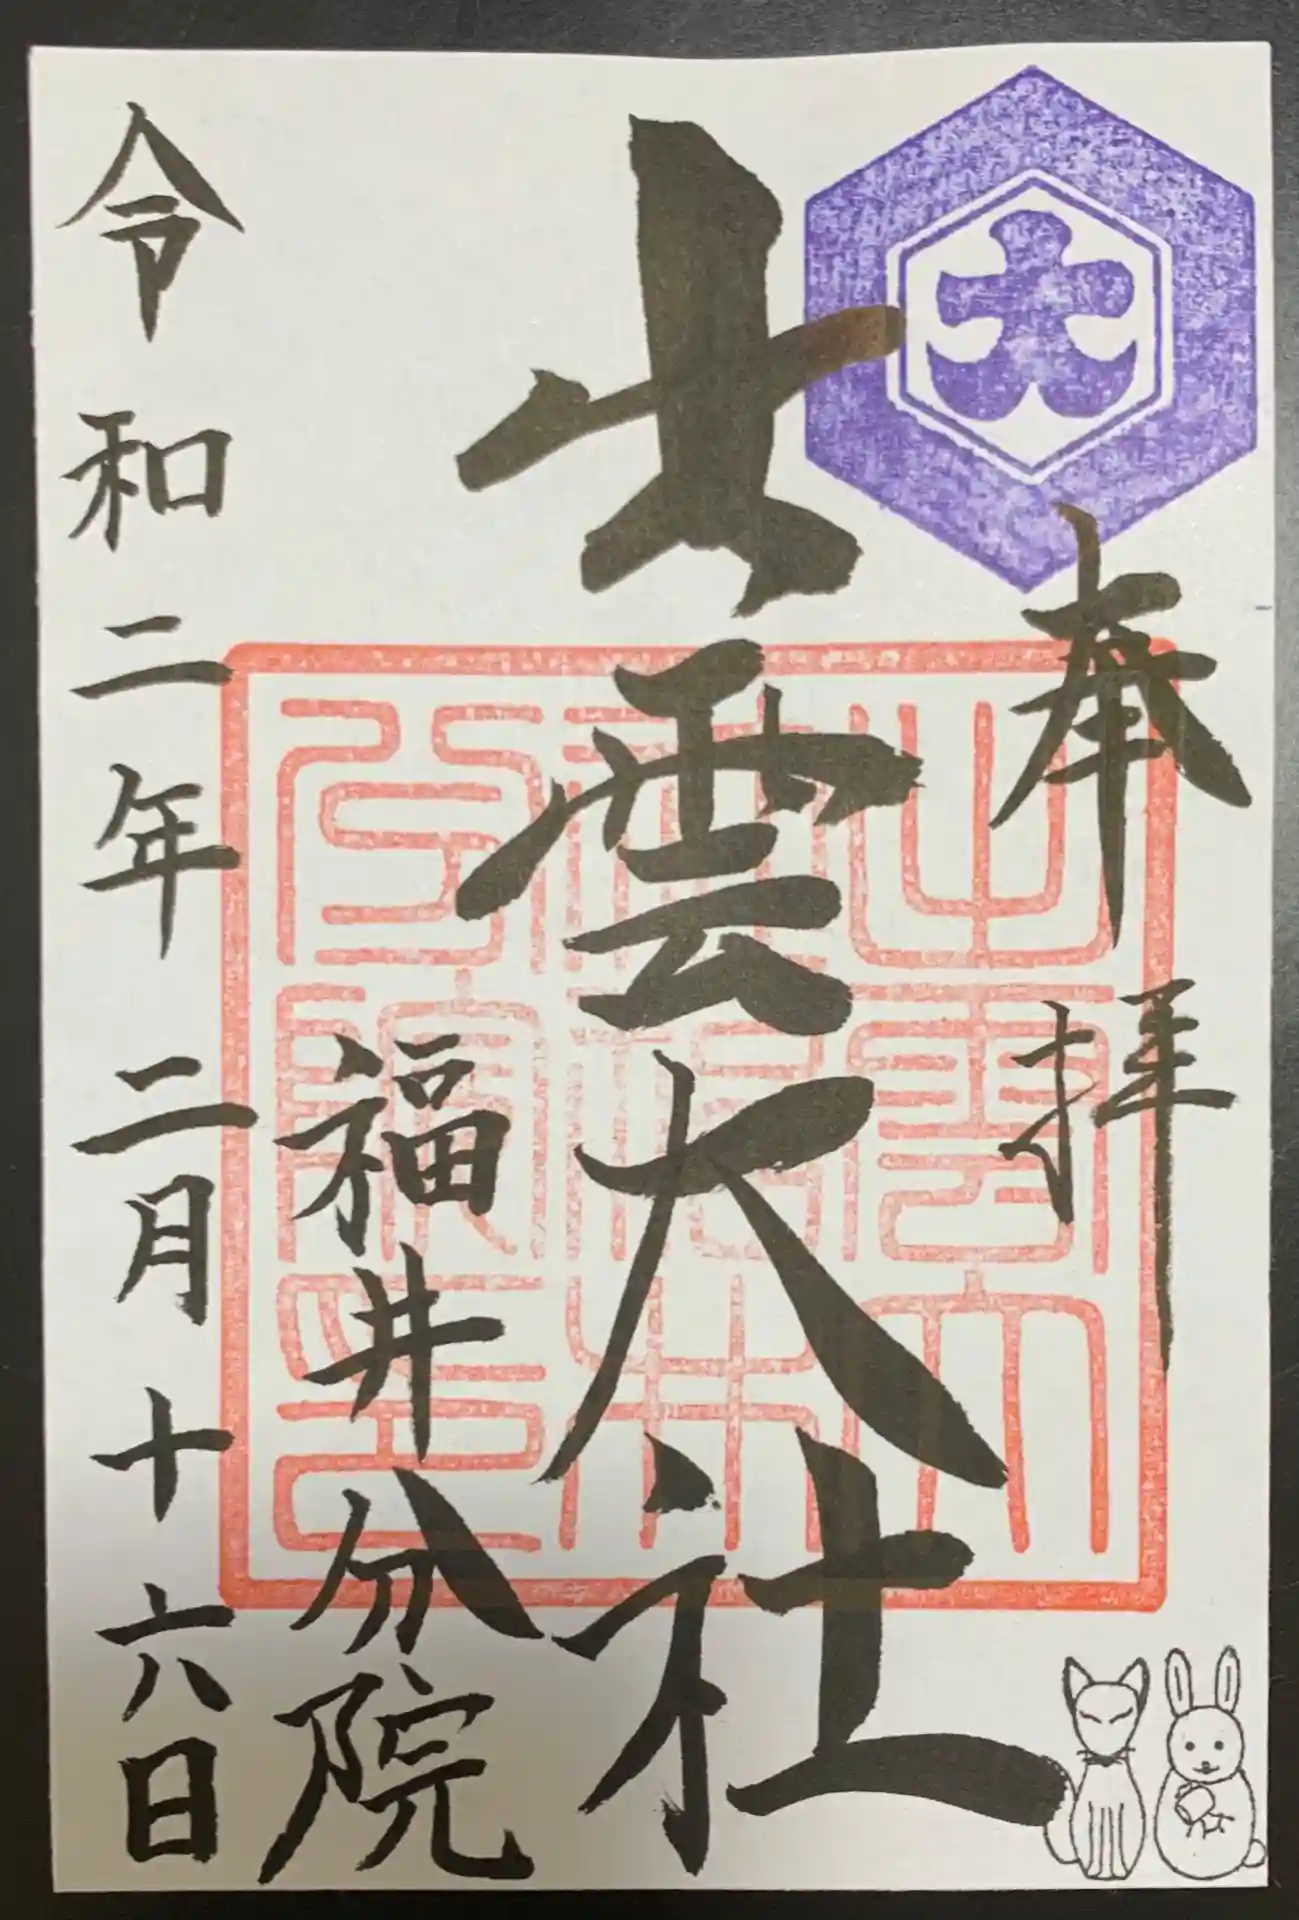 奉拝
出雲大社
福井分院
令和二年二月十六日
大
出雲大
社福井
分院印